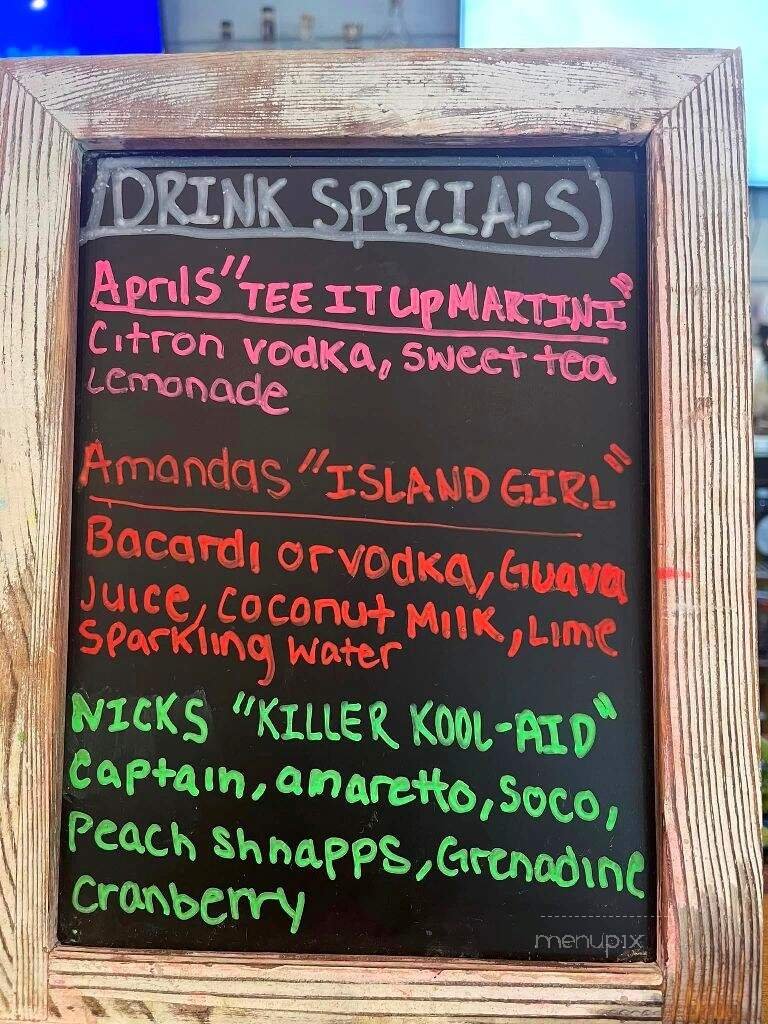 DRINK SPECIALS
Aprils "TEE IT UP MARTINI"
Citron vodka, sweet tea
Lemonade
Amandas "ISLAND GIRL"
Bacardi or vodka, Guava
Juice, coconut Milk, Lime
Sparkling water
NICKS "KILLER KOOL-AID"
Captain, amaretto, soco,
Peach Shnapps, Grenadine
Cranberry
menupix